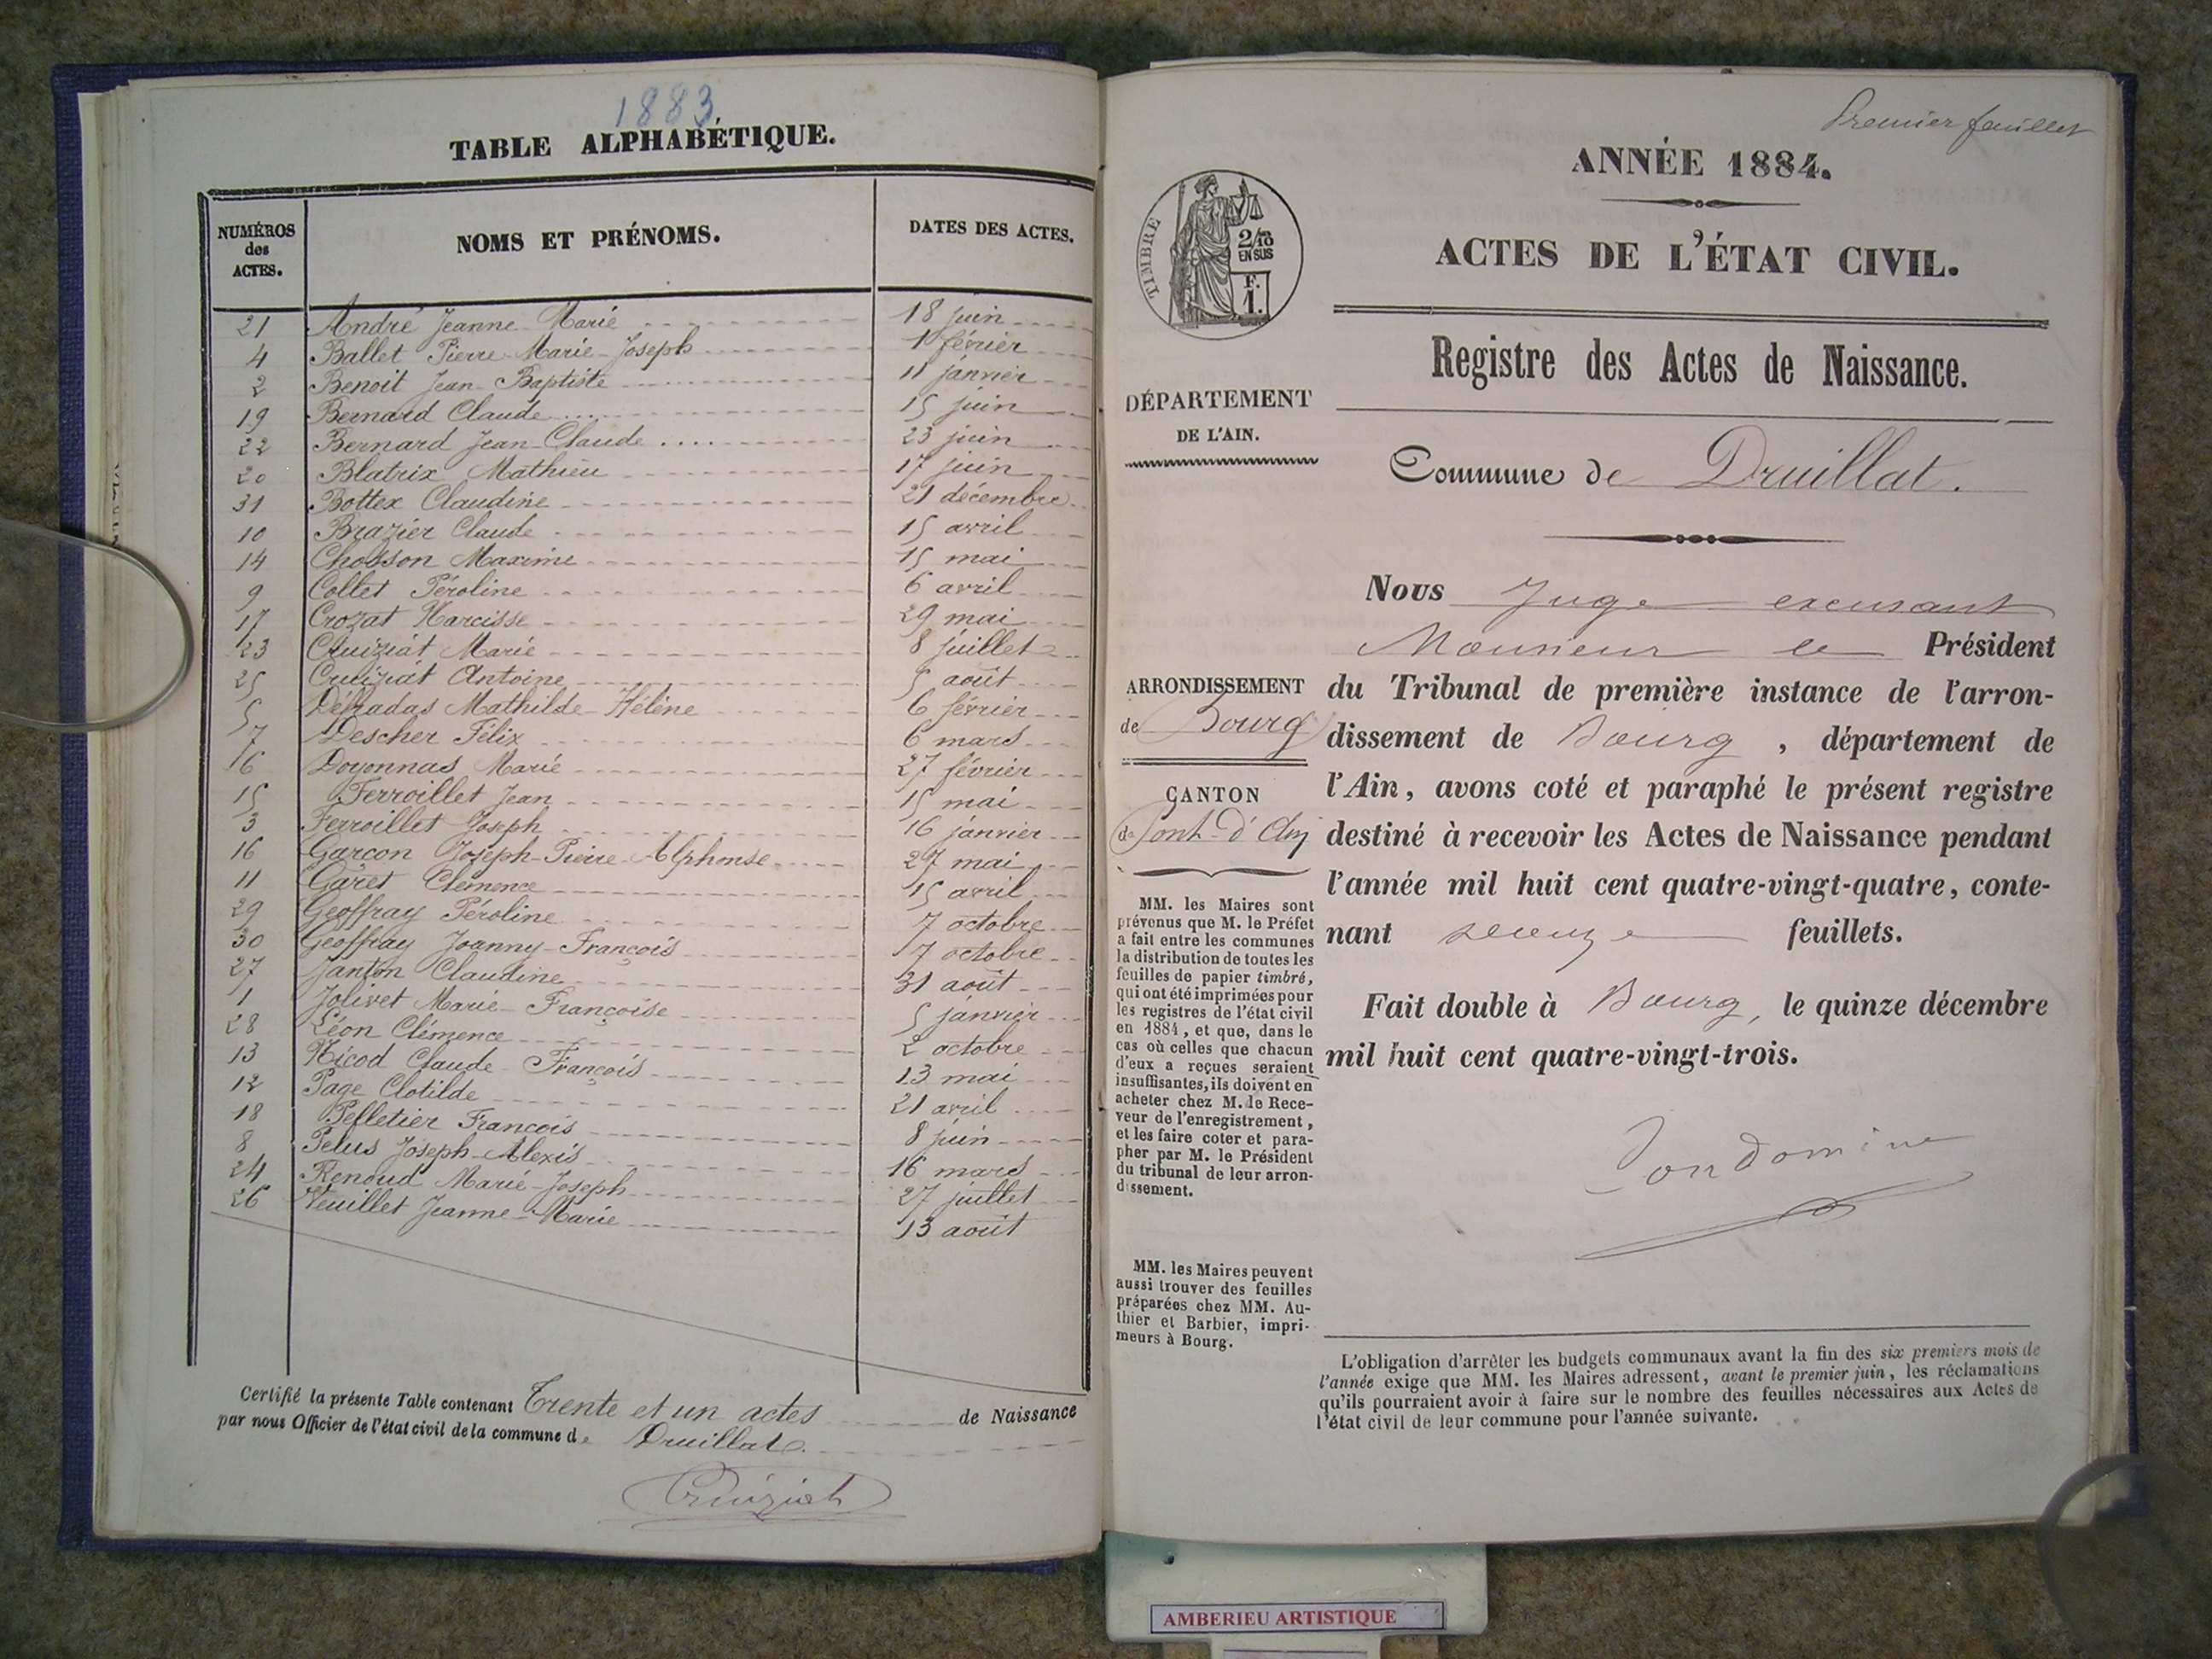 1883
TABLE ALPHABÉTIQUE.
NUMÉROS des ACTES.
NOMS ET PRÉNOMS.
DATES DES ACTES.
21 André Jeanne Marie 18 juin
4 Ballet Pierre-Marie-Joseph 1 février
2 Benoit Jean-Baptiste 11 janvier
19 Bernard Claude 15 juin
22 Bernard Jean-Claude 23 juin
20 Blatrix Mathieu 17 juin
31 Bottex Claudine 21 décembre
10 Brazier Claude 15 avril
14 Chosson Maxime 15 mai
9 Collet Péroline 6 avril
17 Crozat Narcisse 29 mai
23 Cruiziat Marie 8 juillet
25 Cruiziat Antoine 5 août
5 Mathilde-Hélène 6 février
7 Descher Félix 6 mars
16 Doyonnas Marie 27 février
15 Ferroillet Jean 15 mai
3 Ferroillet Joseph 16 janvier
16 Garçon Joseph-Pierre-Alphonse 27 mai
11 Garet Clémence 15 avril
29 Geoffray Péroline 7 octobre
30 Geoffray Joanny-François 7 octobre
27 Janton Claudine 31 août
1 Jolivet Marie-Françoise 5 janvier
28 Léon Clémence 2 octobre
13 Nicod Claude-François 13 mai
12 Page Clotilde 21 avril
18 Pelletier François 8 juin
8 Pelus Joseph-Alexis 16 mars
24 Renoud Marie-Joseph 27 juillet
26 Veuillet Jeanne-Marie 13 août
Certifié la présente Table contenant Trente et un actes de Naissance
par nous Officier de l'état civil de la commune de Druillat.
Cruiziat
Premier feuillet
ANNÉE 1884.
ACTES DE L'ÉTAT CIVIL.
TIMBRE
2/10
EN SUS
F.
1.
Registre des Actes de Naissance.
DÉPARTEMENT
DE L'AIN.
Commune de Druillat.
Nous Juge excusant
Monsieur le Président
du Tribunal de première instance de l'arron-
dissement de Bourg, département de
l'Ain, avons coté et paraphé le présent registre
destiné à recevoir les Actes de Naissance pendant
l'année mil huit cent quatre-vingt-quatre, conte-
nant seize feuillets.
Fait double à Bourg, le quinze décembre
mil huit cent quatre-vingt-trois.
ARRONDISSEMENT
de Bourg
CANTON
de Pont-d'Ain
MM. les Maires sont
prévenus que M. le Préfet
a fait entre les communes
la distribution de toutes les
feuilles de papier timbré,
qui ont été imprimées pour
les registres de l'état civil
en 1884, et que, dans le
cas où celles que chacun
d'eux a reçues seraient
insuffisantes, ils doivent en
acheter chez M. le Rece-
veur de l'enregistrement,
et les faire coter et para-
pher par M. le Président
du tribunal de leur arron-
dissement.
MM. les Maires peuvent
aussi trouver des feuilles
préparées chez MM. Au-
thier et Barbier, impri-
meurs à Bourg.
L'obligation d'arrêter les budgets communaux avant la fin des six premiers mois de
l'année exige que MM. les Maires adressent, avant le premier juin, les réclamations
qu'ils pourraient avoir à faire sur le nombre des feuilles nécessaires aux Actes de
l'état civil de leur commune pour l'année suivante.
AMBERIEU ARTISTIQUE